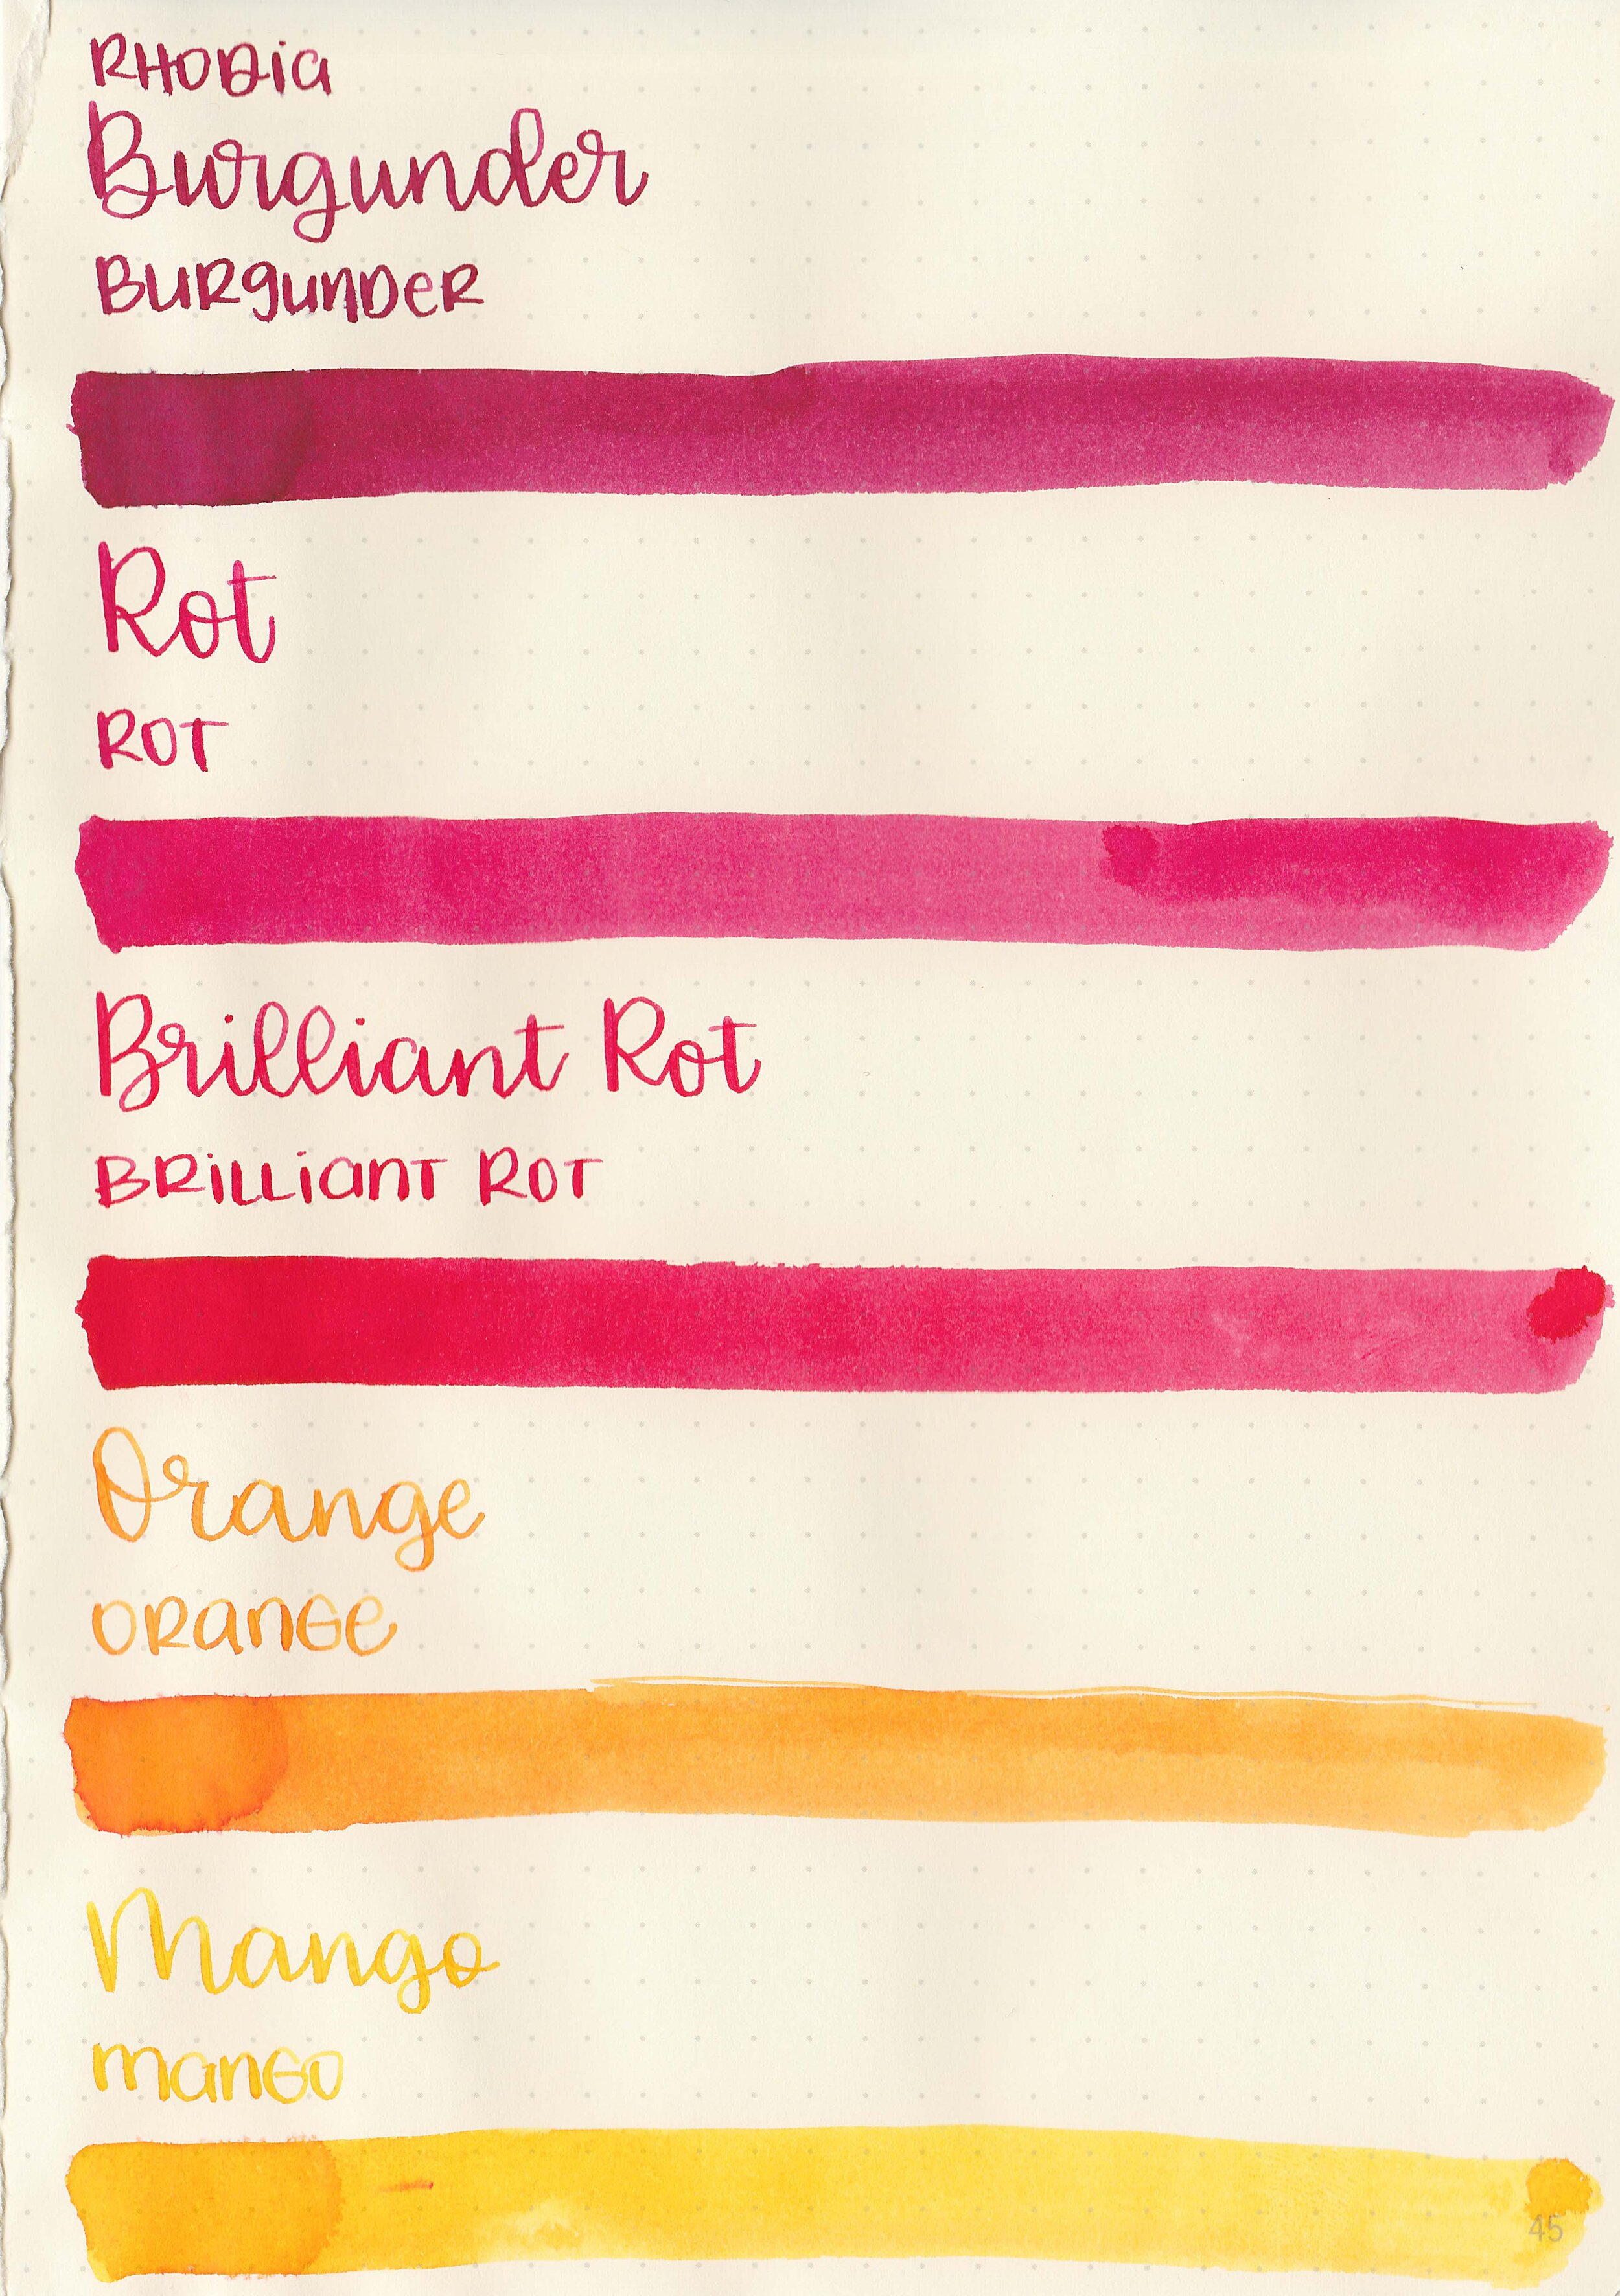 RHODia
Burgunder
BURgunDeR
Rot
ROT
Brilliant Rot
BRiLLianT ROT
Orange
ORanGe
Mango
manGO
45